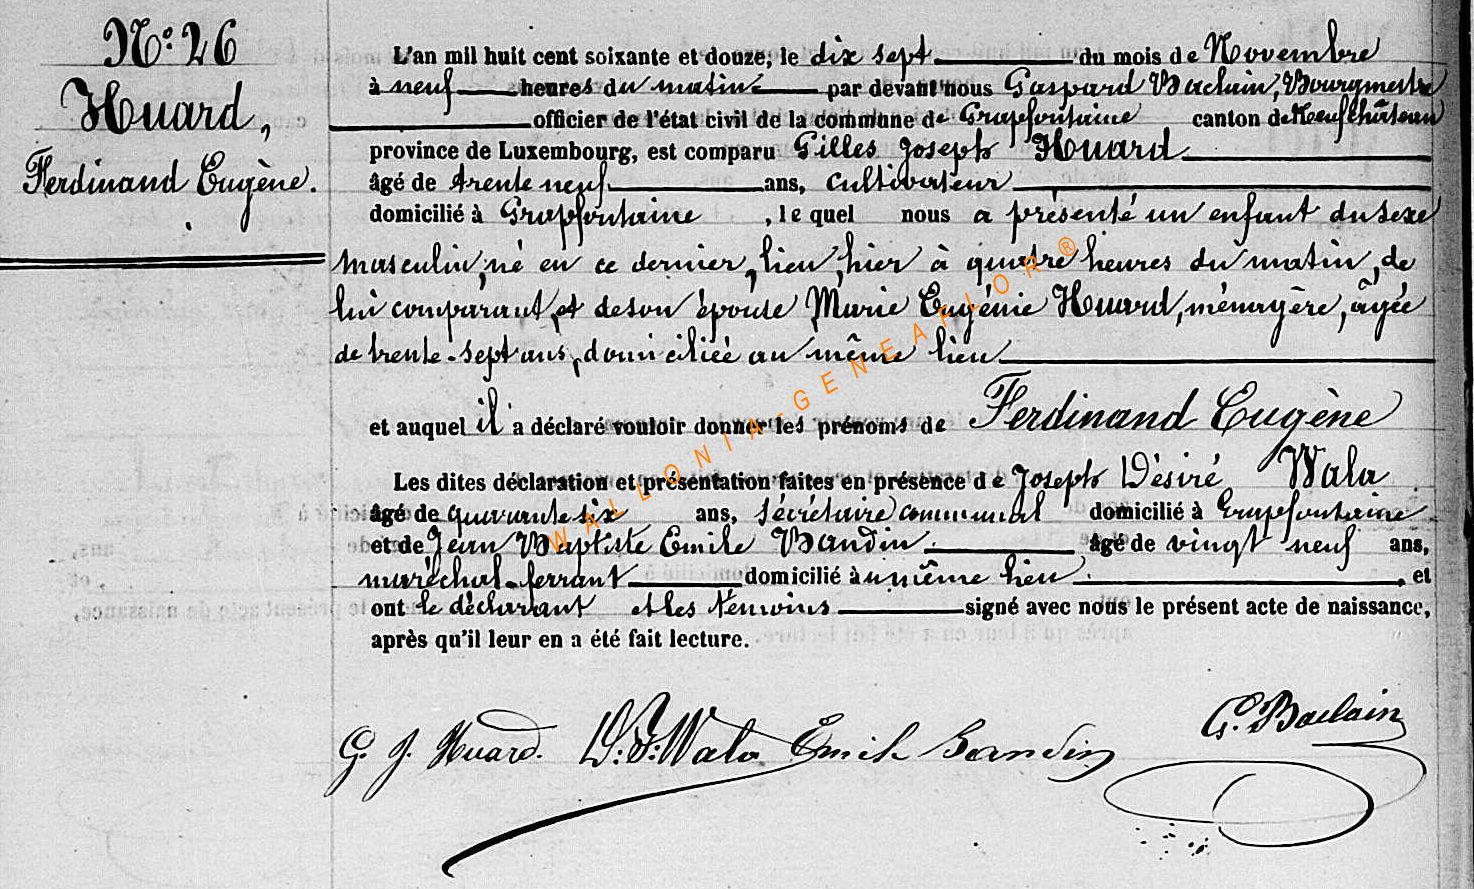 N° 26
Huard,
Ferdinand Eugène.
L'an mil huit cent soixante et douze, le dix sept du mois de Novembre
à neuf heures du matin par devant nous Gaspard Baclain, Bourgmestre
officier de l'état civil de la commune de Grapfontaine canton de Neufchâteau
province de Luxembourg, est comparu Gilles Joseph Huard
âgé de trente neuf ans, cultivateur
domicilié à Grapfontaine, lequel nous a présenté un enfant du sexe
masculin, né en ce dernier lieu, hier à quatre heures du matin, de
lui comparant, et de son épouse Marie Eugénie Huard, ménagère, âgée
de trente-sept ans, domiciliée au même lieu
et auquel il a déclaré vouloir donner les prénoms de Ferdinand Eugène
Les dites déclaration et présentation faites en présence de Joseph Désiré Wala
âgé de quarante six ans, sécrétaire communal domicilié à Grapfontaine
et de Jean Baptiste Emile Bandin âgé de vingt neuf ans,
maréchal-ferrant domicilié au même lieu, et
ont le déclarant et les témoins signé avec nous le présent acte de naissance,
après qu'il leur en a été fait lecture.
G. J. Huard. D. J. Wala Emile Bandin G. Baclain
WALLONIA-GENEAFLOR ®